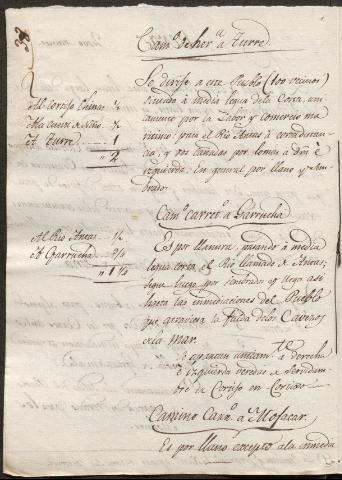 Cam.º de her.ª a Turre
Se divisa a este Pueblo (100 vecinos)
situado à media legua dela Costa, uni-
camente por la Labor y comercio ma-
ritimo: pasa el Rio Antas à
y vàs cañadas por lomas à dra è
izquierda. En general por llano y sem-
brado.
Al Cortijo 1/2
Ala Cueva 1/2
A Turre 1
" 2
Cam.º carret.º a Garrucha
Es por llanura, pasando à media
legua corta el Rio llamado de Antas;
sigue luego por sembrados y llega asi
hasta las inmediaciones del Pueblo
que la falda delos Cavezos
ala mar.
Al Rio Antas 1/2
A Garrucha 3/4
" 1 1/4
Se apartan à derecha
è izquierda veredas de servidum-
bre de Cortijo en Cortijo
Camino Carr.º a Mojacar.
Es por llano excepto ala inmedia